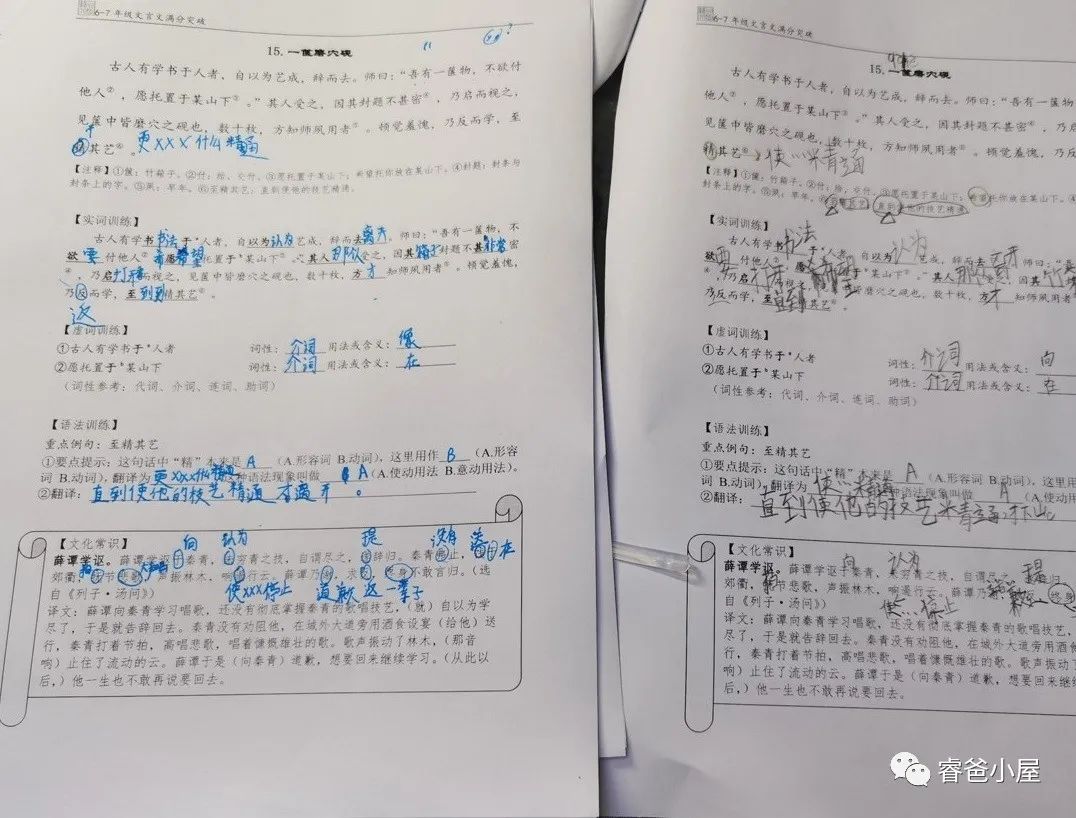 6-7年级文言文满分突破
15.一箧磨穴砚
古人有学书于人者，自以为艺成，辞而去。师曰：“吾有一箧物，不欲付
他人②，愿托置于某山下③。”其人受之，因其封题不甚密④，乃启而视之，
见箧中皆磨穴之砚也，数十枚，方知师夙用者⑤。顿觉羞愧，乃反而学，至
精其艺⑥。更XXX什么精通
【注释】①箧：竹箱子。②付：给、交付。③愿托置于某山下：希望托你放在某山下。④封题：封条与
封条上的字。⑤夙：早年。⑥至精其艺：直到使他的技艺精通。
【实词训练】
古人有学书书法于*人者，自以为认为艺成，辞而去离开。师曰：“吾有一箧物，不
欲要付他人②，愿希望托置于*某山下③。”其人那个人受之，因其箱子封题不甚非常密
④，乃启打开而视之，见箧中皆磨穴之砚也，数十枚，方才知师夙用者⑤。顿觉羞愧，
乃反而学，至到到精其艺⑥。
返
【虚词训练】
①古人有学书于*人者 词性：介词 用法或含义：像
②愿托置于*某山下 词性：介词 用法或含义：在
（词性参考：代词、介词、连词、助词）
【语法训练】
重点例句：至精其艺
①要点提示：这句话中“精”本来是 A （A.形容词 B.动词），这里用作 B （A.形容
词 B.动词），翻译为更XXX什么精通这种语法现象叫做 A （A.使动用法 B.意动用法）。
②翻译：直到使他的技艺精通
【文化常识】
向 认为 提 没有
薛谭学讴。薛谭学讴于秦青，未穷青之技，自谓尽之，遂辞归。秦青弗止，
郊衢，抚节悲歌，声振林木，响遏行云。薛谭乃谢，求反，终身不敢言归。（选
自《列子·汤问》）
使XXX停止 道歉 返 一辈子
译文：薛谭向秦青学习唱歌，还没有彻底掌握秦青的歌唱技艺，（就）自以为学
尽了，于是就告辞回去。秦青没有劝阻他，在城外大道旁用酒食设宴（给他）送
行，秦青打着节拍，高唱悲歌，唱着慷慨雄壮的歌。歌声振动了林木，（那音
响）止住了流动的云。薛谭于是（向秦青）道歉，想要回来继续学习。（从此以
后，）他一生也不敢再说要回去。
6-7年级文言文满分突破
15.一箧磨穴砚
古人有学书于人者，自以为艺成，辞而去。师曰：“吾有一箧物
他人②，愿托置于某山下③。”其人受之，因其封题不甚密④，乃启
见箧中皆磨穴之砚也，数十枚，方知师夙用者⑤。顿觉羞愧，乃反
精其艺⑥。使…精通
【注释】①箧：竹箱子。②付：给、交付。③愿托置于某山下：希望托你放在某山下。④
封条上的字。⑤夙：早年。⑥至精其艺：直到使他的技艺精通。
【实词训练】
古人有学书书法于*人者，自以为认为艺成，辞而去离开师曰：“吾有一箧物
欲要付他人②，愿希望托置于*某山下③。”其人那个人受之，因其竹箱
④，乃启打开而视之，见箧中皆磨穴之砚也，数十枚，方才知师夙用者⑤
乃反而学，至直到精其艺⑥。
【虚词训练】
①古人有学书于*人者 词性：介词 用法或含义：向
②愿托置于*某山下 词性：介词 用法或含义：在
（词性参考：代词、介词、连词、助词）
【语法训练】
重点例句：至精其艺
①要点提示：这句话中“精”本来是 A （A.形容词 B.动词），这里用
词 B.动词），翻译为使…精通这种语法现象叫做 A （A.使动用
②翻译：直到使他的技艺精通
【文化常识】
向 认为 提
薛谭学讴。薛谭学讴于秦青，未穷青之技，自谓尽之，遂辞归。
郊衢，抚节悲歌，声振林木，响遏行云。薛谭乃
自《列子·汤问》）
使…停止
译文：薛谭向秦青学习唱歌，还没有彻底掌握秦青的歌唱技艺，
尽了，于是就告辞回去。秦青没有劝阻他，在城外大道旁用酒食
行，秦青打着节拍，高唱悲歌，唱着慷慨雄壮的歌。歌声振动了
响）止住了流动的云。薛谭于是（向秦青）道歉，想要回来继续
后，）他一生也不敢再说要回去。
睿爸小屋